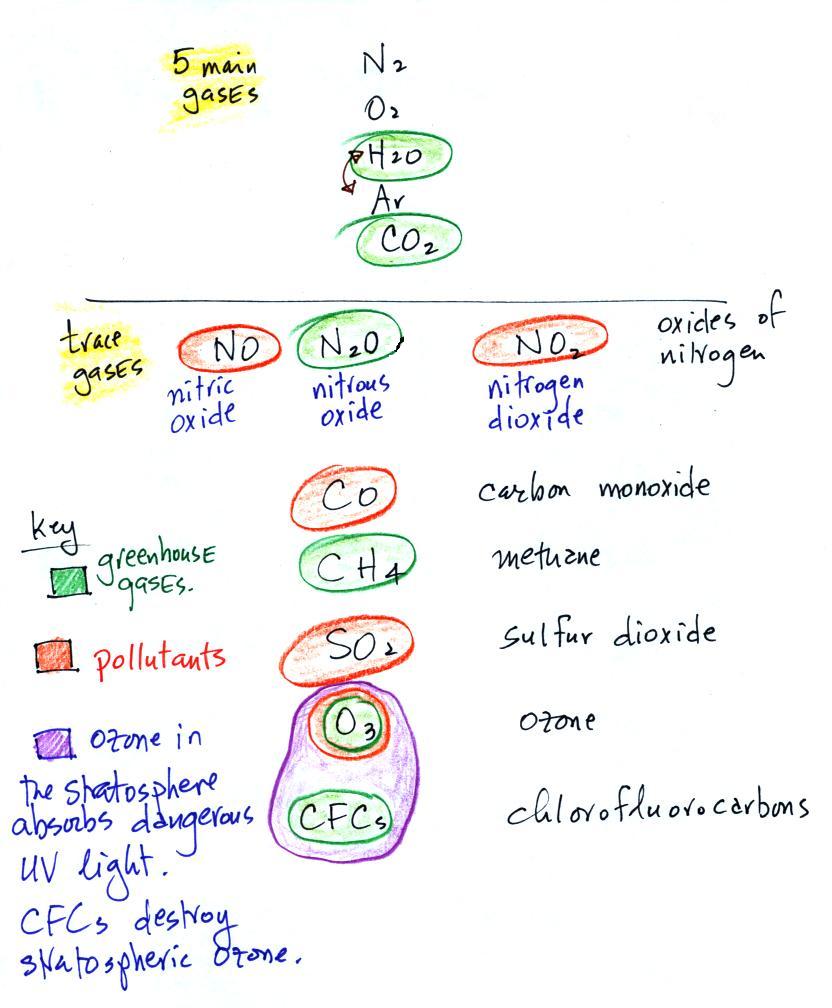 5 main
gases
N2
O2
H2O
Ar
CO2
trace
gases
NO
N2O
NO2
oxides of
nitrogen
nitric
oxide
nitrous
oxide
nitrogen
dioxide
CO
carbon monoxide
Key
greenhouse
gases.
CH4
methane
pollutants
SO2
sulfur dioxide
O3
ozone
ozone in
the stratosphere
absorbs dangerous
UV light.
CFCs
chlorofluorocarbons
CFCs destroy
stratospheric ozone.